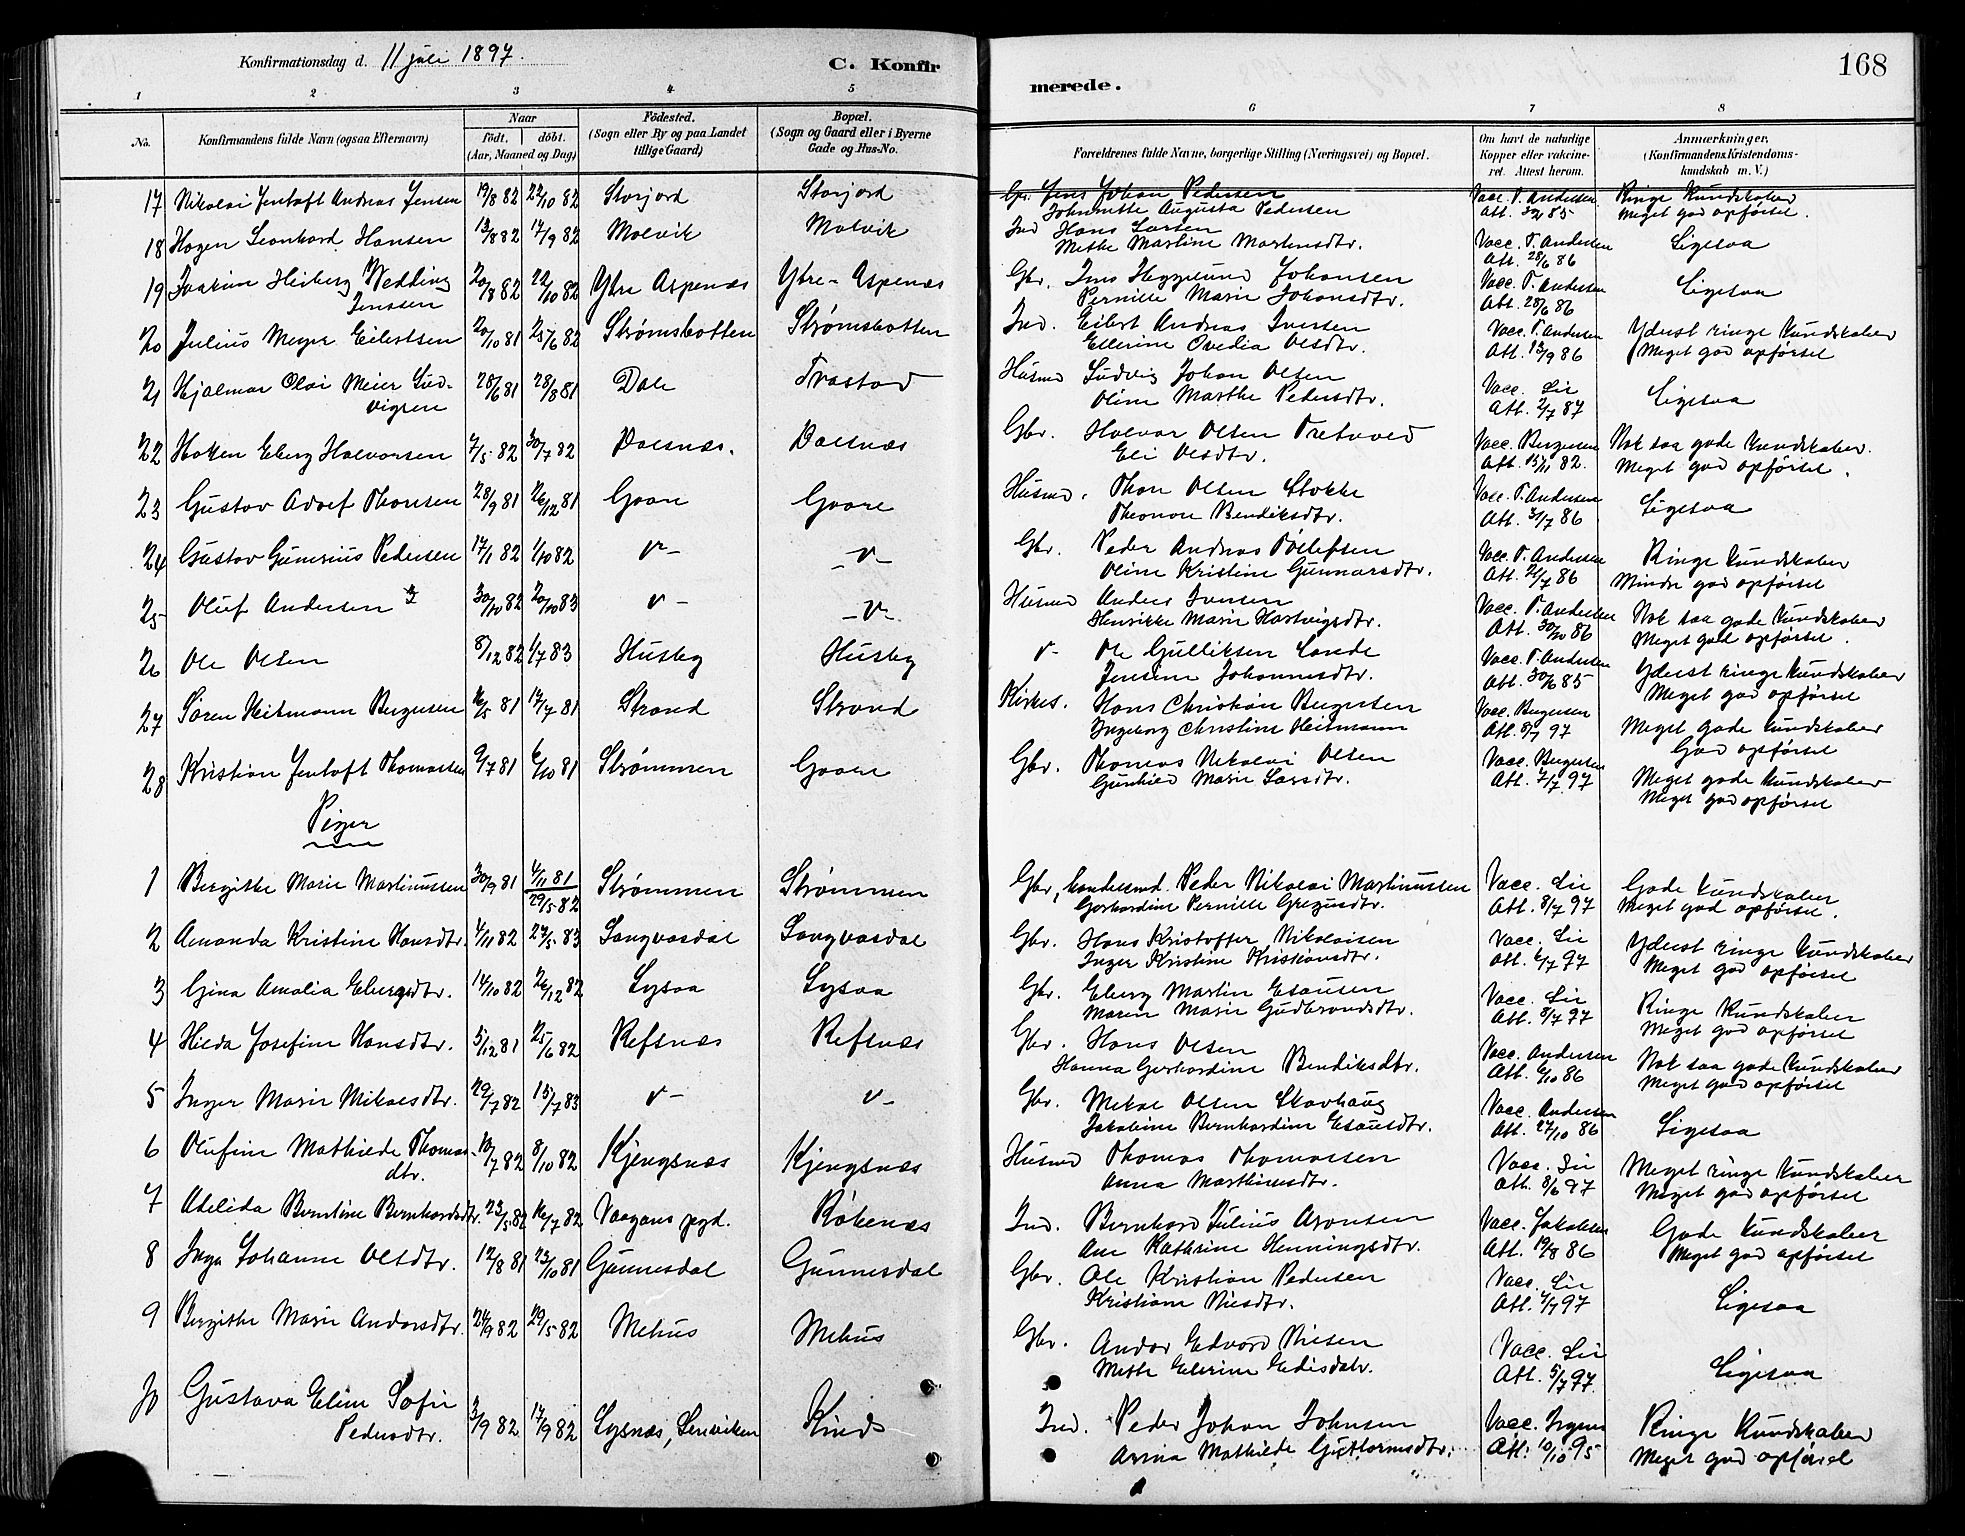 Konfirmationsdag d. 11 juli 1897.
C. Konfirmerede.
168
1 2 3 4 5 6 7 8
No.
Konfirmandens fulde Navn (ogsaa Efternavn)
Naar
født. døbt.
(Aar, Maaned og Dag)
Fødested.
(Sogn eller By og paa Landet
tillige Gaard)
Bopæl.
(Sogn og Gaard eller i Byerne
Gade og Hus-No.
Forældrenes fulde Navne, borgerlige Stilling (Næringsvei) og Bopæl.
Om havt de naturlige
Kopper eller vakcine-
ret. Attest herom.
Anmærkninger,
(Konfirmandens Kristendoms-
kundskab m. V.)
17 Nikolai Jentoft Andreas Jensen 19/8 82 22/10 82 Storjord Storjord Gbr. Jens Johan Pedersen Vacc. T. Andersen Ringe Kundskaber
Johannette Augusta Pedersen Att. 85 Meget god opførsel.
18 Hagen Leonhard Hansen 13/8 82 17/9 82 Molvik Molvik Ind Hans Larsen Vacc. T. Andersen Ligesaa
Mette Martine Martinsdtr. Att. 28/6 86
19 Joakim Heiberg Wedding 20/8 82 22/10 82 Ytre Aspenæs Ytre-Aspenæs Gbr. Jens Hegglund Johansen Vacc. T. Andersen Ligesaa
Jenssen Pernille Marie Johansdtr. Att. 28/6 86
20 Julius Meyer Eilertsen 20/10 81 25/6 82 Strømsbotten Strømsbotten Ind. Eilert Andreas Iversen Vacc. T. Andersen Yderst ringe Kundskaber
Ellerine Ovedia Olsdtr. Att. 13/9 86 Meget god opførsel
21 Hjalmar Olai Meier Lud- 28/6 81 28/8 81 Dale Trastad Husmd Ludvig Johan Olsen Vacc. Lie Ligesaa
vigsen Oline Marthe Pedersdtr. Att. 2/7 87
22 Hakken Eberg Halvorsen 4/5 82 30/7 82 Dalsnæs. Dalsnæs Gbr. Halvor Olsen Tretveed Vacc. Bergersen Nok saa gode Kundskaber.
Eli Olsdtr. Att. 15/11 82. Meget god opførsel.
23 Gustav Adolf Thorsen 28/9 81 26/12 81 Gaare Gaare Husmd. Thor Olsen Stokke Vacc. T. Andersen Ligesaa
Theonore Bendiksdtr. Att. 31/7 86
24 Gustav Gunerius Pedersen 17/1 82 1/10 82 v- -v- Gbr. Peder Andreas Tollefsen Vacc. T. Andersen Ringe Kundskaber
Oline Kristine Gunnarsdtr. Att. 21/7 86 Mindre god opførsel
25 Oluf Andersen 30/10 82 20/10 83 v- -v- Husmd Anders Iversen Vacc. T. Andersen Nok saa gode Kundskaber
Henrikke Marie Hartvigsdtr. Att. 30/10 86 Meget god opførsel.
26 Ole Olsen 8/12 82 1/7 83 Husby Husby v- Ole Gulliksen Lande Vacc. T. Andersen Yderst ringe Kundskaber
Jensine Johannesdtr. Att. 30/6 85 Meget god opførsel
27 Søren Heitmann Bergersen 16/5 81 17/7 81 Strand Strand Kirkes. Hans Christian Bergersen Vacc. Bergersen Meget gode Kundskaber
Ingeborg Christine Heitmann Att. 8/7 97 God opførsel
28 Kristian Jentoft Thomassen 9/7 81 6/10 81 Strømmen Gaare Gbr. Thomas Nikolai Olsen Vacc. Bergersen Meget gode Kundskaber
Gunhild Marie Larsdtr. Att. 7/7 97 Meget god opførsel
Piger
1 Bergitte Marie Martinussen 30/9 81 4/11 81 Strømmen Strømmen Gbr, Landessmd. Peder Nikolai Martinussen Vacc. Lie Gode Kundskaber
29/5 82 Gerhardine Pernille Gregusdtr. Att. 8/7 97 Meget god opførsel.
2 Amanda Kristine Hansdtr. 4/11 82 27/5 83 Langvasdal Langvasdal Gbr. Hans Kristoffer Nikolaisen Vacc. Lie Yderst ringe Kundskaber
Inger Kristine Kristiansdtr. Att. 6/7 97 Meget god opførsel
3 Gina Amalia Ebergsdtr. 14/10 82 26/12 82 Lysaa Lysaa Gbr. Eberg Martin Esausen Vacc. Lie Ringe Kundskaber
Maren Marie Gudbrandsdtr. Att. 8/7 97 Meget god opførsel
4 Hilda Josefine Hansdtr. 5/12 81 25/6 82 Refsnæs Refsnæs Gbr. Hans Olsen Vacc. Andersen Nok saa gode Kundskaber
Hanna Gerhardine Bendiksdtr. Att. 6/10 86 Meget god opførsel
5 Inger Marie Mikalsdtr. 29/7 82 15/7 83 v- v- Gbr. Mekal Olsen Skavhaug Vacc. Andersen Ligesaa
Jakobine Bernhardine Esausdtr. Att. 27/10 86
6 Olufine Mathilde Thomas- 10/7 82 8/10 82 Kjengsnæs Kjengsnæs Husmd Thomas Thomassen Vacc. Lie Meget ringe Kundskaber
dtr. Anna Martinusdtr. Att. 8/6 97 Meget god opførsel
7 Adelida Berntine Bernhardsdtr. 23/5 82 16/7 82 Vaagans pgd. Røkenæs Ind. Bernhard Julius Aronsen Vacc. Jakobsen Gode Kundskaber
Ane Kathrine Henningsdtr. Att. 19/8 86 Meget god opførsel
8 Inga Johanne Olsdtr. 12/8 81 23/10 81 Gunnesdal Gunnesdal Gbr. Ole Kristian Pedersen Vacc. Lie Ligesaa
Kristiane Nilsdtr. Att. 4/7 97
9 Bergitte Marie Andorsdtr. 24/9 82 29/5 82 Melhus Melhus Gbr. Andor Edvard Nilsen Vacc. Lie Ligesaa
Mette Elerine Edisdatr. Att. 5/7 97
10 Gustava Eline Sofie 3/9 82 17/9 82 Lysnæs, Lenviken Kind Ind. Peder Johan Johnsen Vacc. Ringe Kundskaber
Pedersdtr. Arina Mathilde Guttormsdtr. Att. 10/10 95 Meget god opførsel